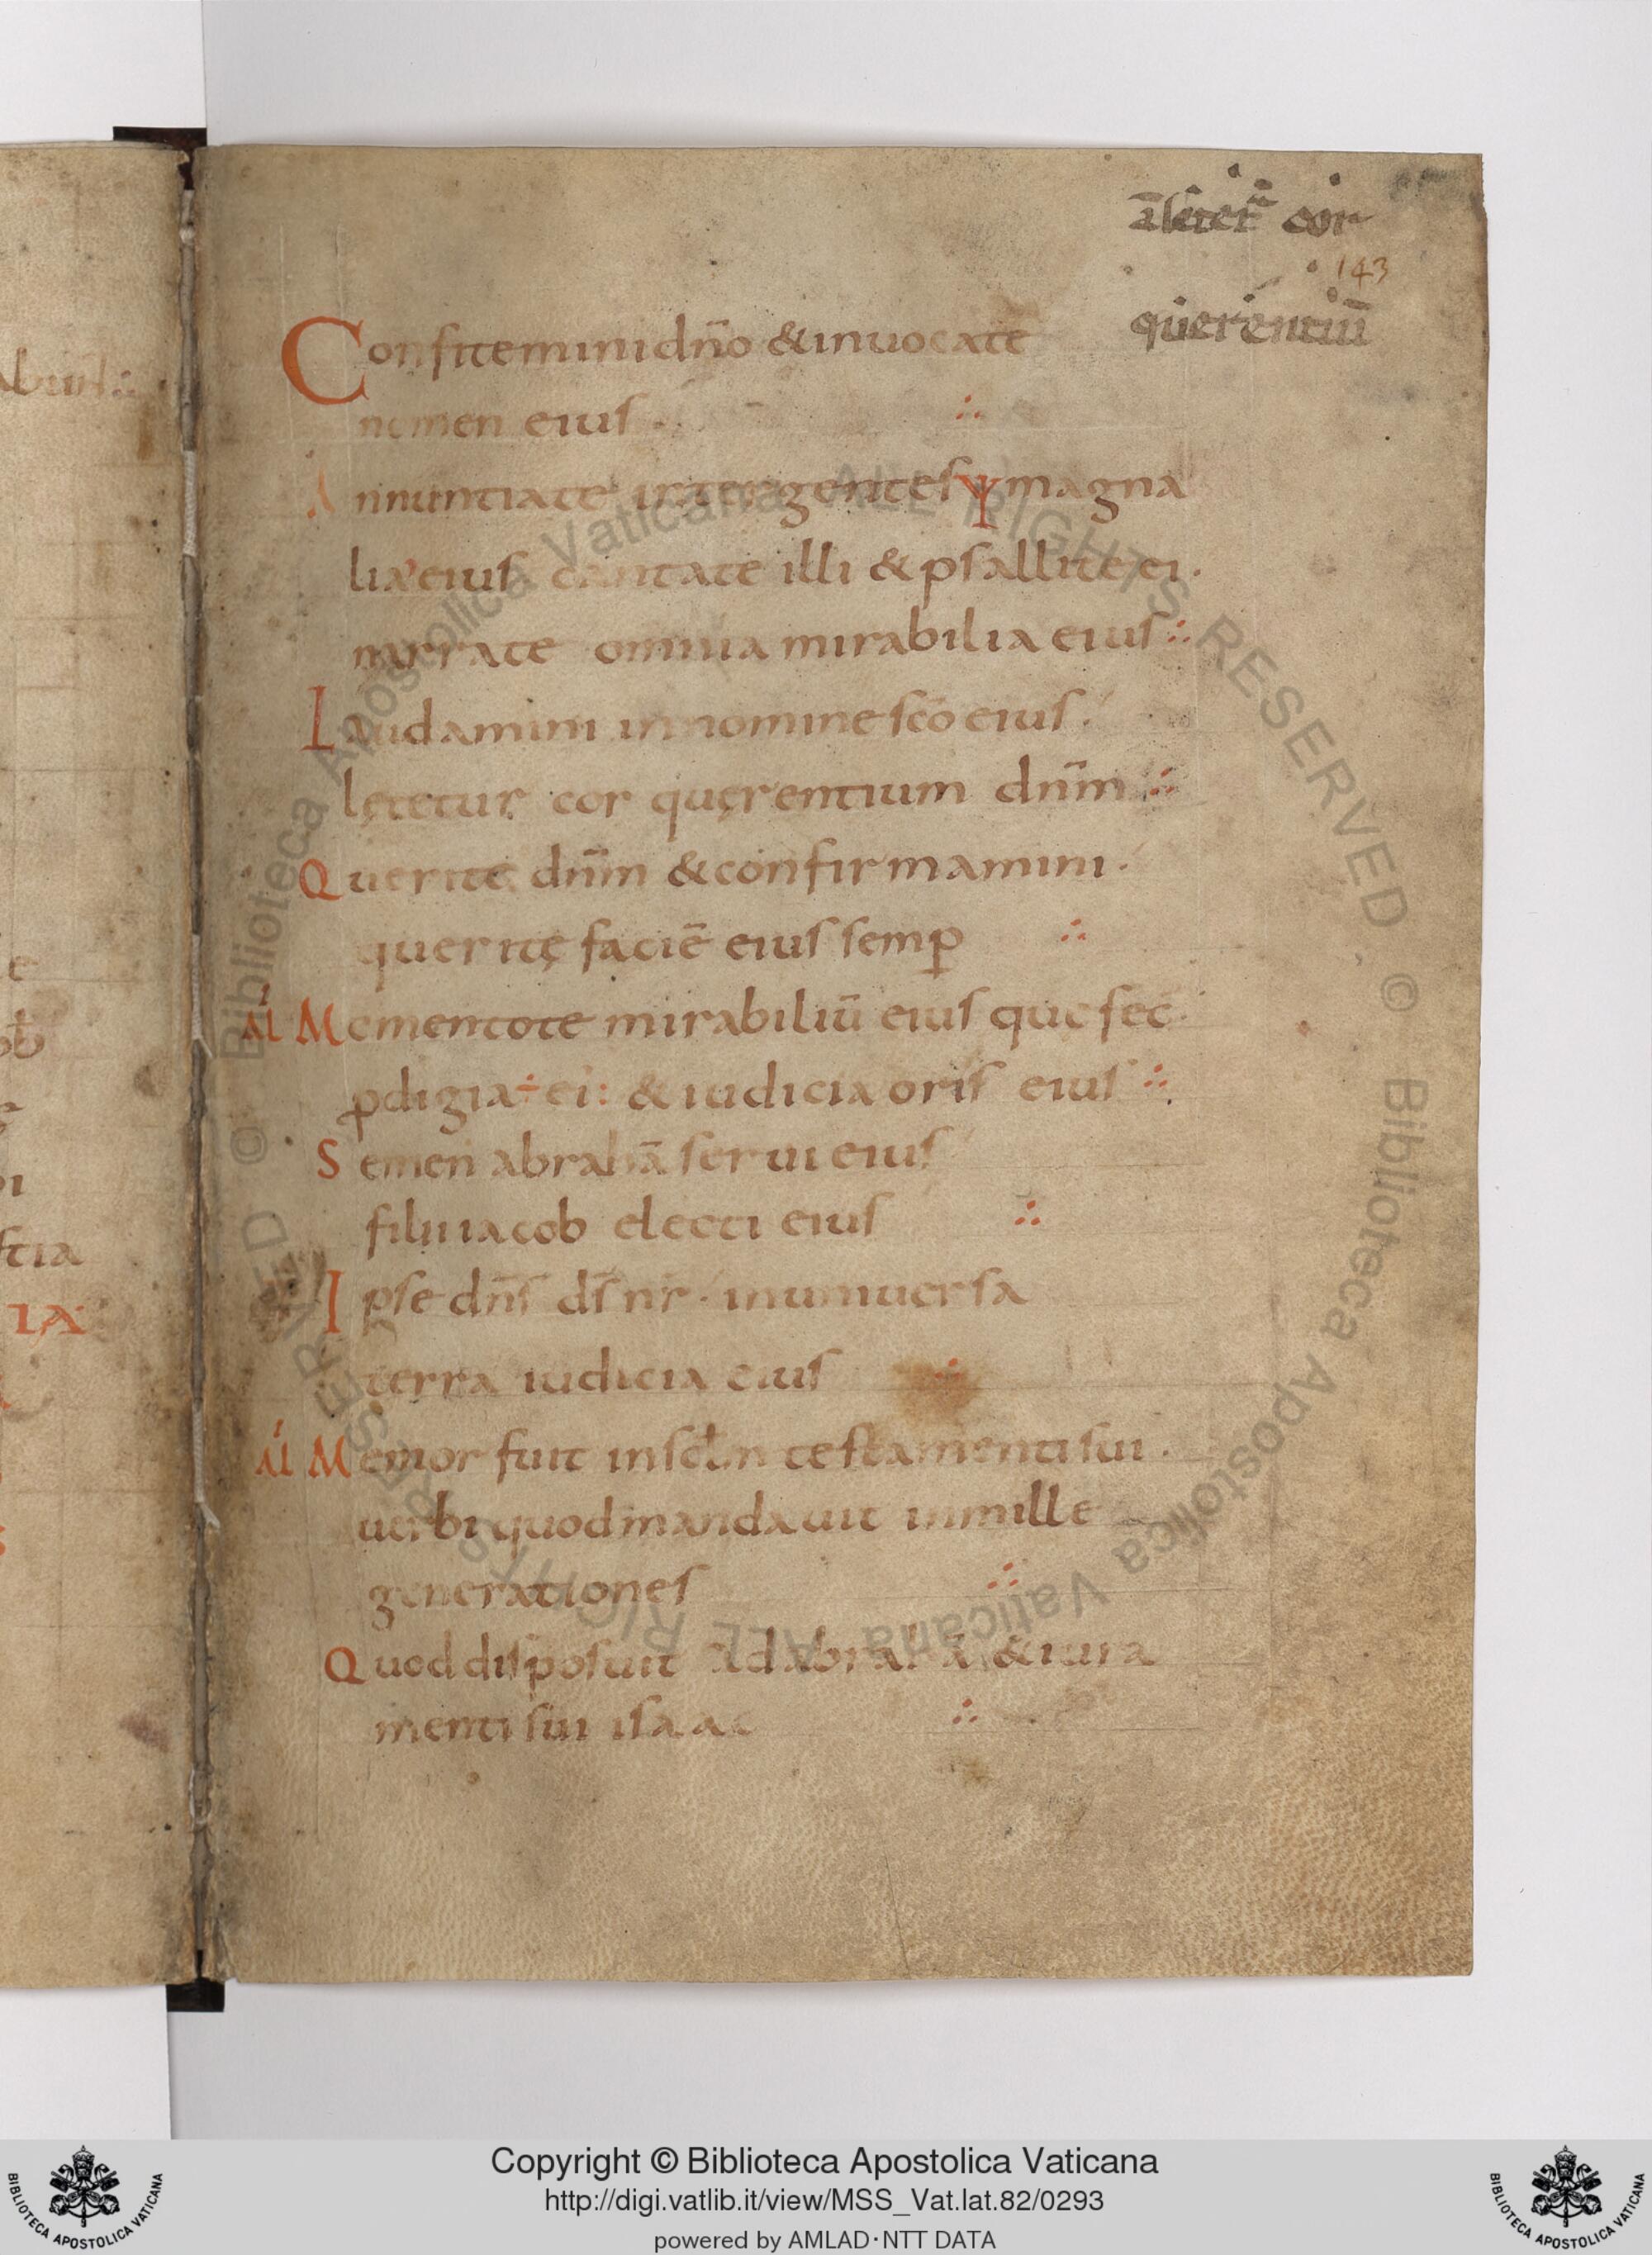 a̅ leter̃ cor
143
querentiu̅
Confitemini dn̅o & inuocate
nomen eius.
Annuntiate inter gentes magna
lia eius cantate illi & psallite ei.
narrate omnia mirabilia eius
Laudamini in nomine sc̅o eius.
lętetur cor quęrentium dn̅m
Querite dn̅m & confirmamini.
queritę facie̅ eius semp̅
Al̅ Mementote mirabiliu̅ eius que fec̅.
ꝓdigia ÷ ei: & iudicia oris eius
Semen abraha̅ serui eius
filii iacob electi eius
Ipse dn̅s ds̅ nr̅. in uniuersa
terra iudicia eius
Al̅ Memor fuit in scl̅m testamenti sui.
uerbi quod mandauit in mille
generationes
Quod disposuit ad abraha̅ & iura
menti sui isaac
Copyright © Biblioteca Apostolica Vaticana
http://digi.vatlib.it/view/MSS_Vat.lat.82/0293
powered by AMLAD·NTT DATA
BIBLIOTECA APOSTOLICA VATICANA
BIBLIOTECA APOSTOLICA VATICANA
© Biblioteca Apostolica Vaticana ALL RIGHTS RESERVED. © Biblioteca Apostolica Vaticana ALL RIGHTS RESERVED